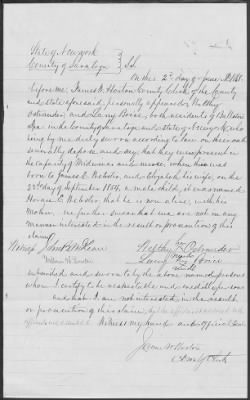 State of New york
County of Saratoga } S.S.
On this 2nd day of June 1868
before me, James W. Horton County Clerk of the County
and state aforesaid, personally appeared Welthy
Ostrander and Lany Boice, both residents of Ballston
Spa in the County of Saratoga and state of New york who
being by me duly sworn according to law on their oath
severally depose and say that they were present in
the capacity of Midwives and nurse, when there was
born to James E. Webster, and Elizabeth his wife, on the
23rd day of September 1854, a male child; it was named
Horace E. Webster, that he is now alive, with his
Mother. We further swear that we are not in any
manner interested in the result or prosecution of this
claim
Witness John B. McLean
William H. Horton
Welthy X Ostrander
her mark
Lany X Boice
her mark
subscribed and sworn to by the above named persons
whom I certify to be respectable and credible persons
and that I am not interested in the result
or prosecution of this claim
Witness my hand and official seal
James W. Horton
County Clerk